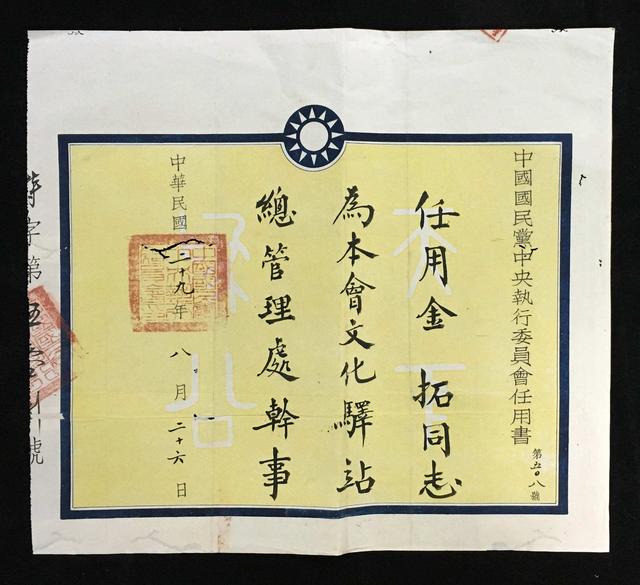 中國國民黨中央執行委員會任用書
第五〇八號
任用金 拓同志
為本會文化驛站
總管理處幹事
中華民國二十九年八月二十六日
字第五 號